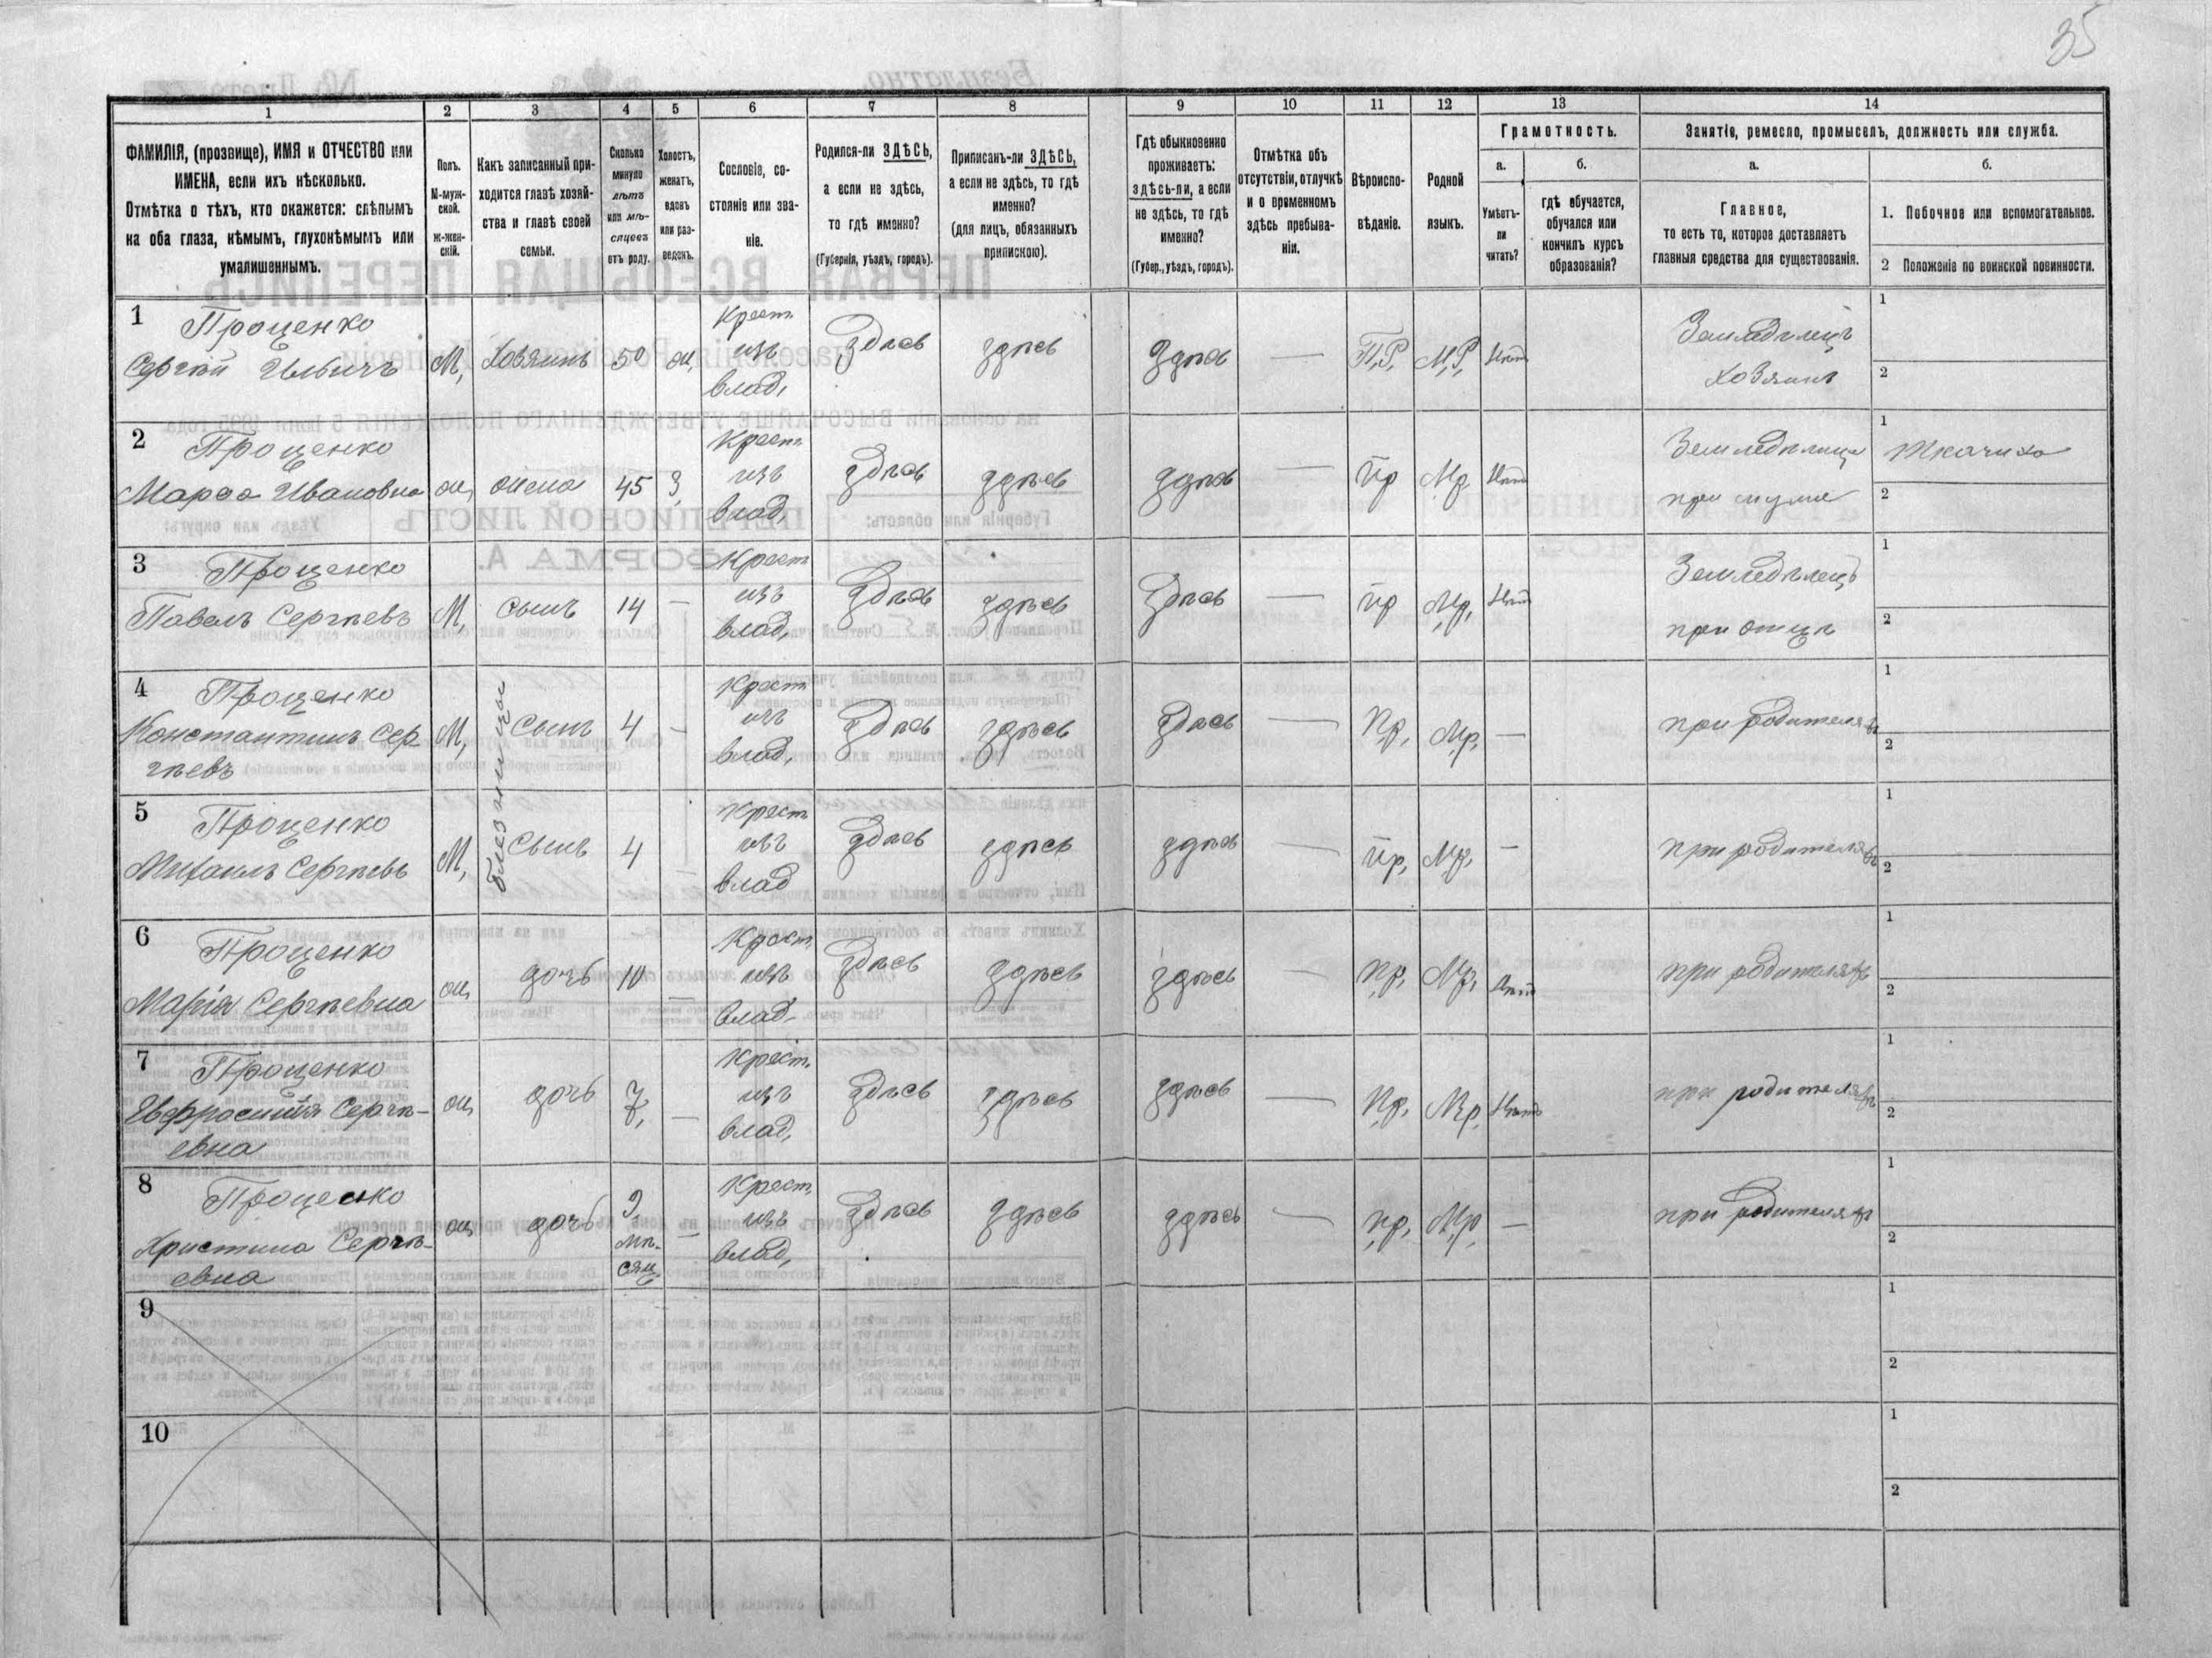 35
1 2 3 4 5 6 7 8 9 10 11 12 13 14
ФАМИЛІЯ, (прозвище), ИМЯ и ОТЧЕСТВО или
ИМЕНА, если ихъ нѣсколько.
Отмѣтка о тѣхъ, кто окажется: слѣпымъ
на оба глаза, нѣмымъ, глухонѣмымъ или
умалишеннымъ.
Полъ.
М-муж-
ской.
Ж-жен-
скій.
Какъ записанный при-
ходится главѣ хозяй-
ства и главѣ своей
семьи.
Сколько
минуло
лѣтъ
или мѣ-
сяцевъ
отъ роду.
Холостъ,
женатъ,
вдовъ
или раз-
веденъ.
Сословіе, со-
стояніе или зва-
ніе.
Родился-ли ЗДѢСЬ,
а если не здѣсь,
то гдѣ именно?
(Губернія, уѣздъ, городъ).
Приписанъ-ли ЗДѢСЬ,
а если не здѣсь, то гдѣ
именно?
(для лицъ, обязанныхъ
припискою).
Гдѣ обыкновенно
проживаетъ:
здѣсь-ли, а если
не здѣсь, то гдѣ
именно?
(Губер., уѣздъ, городъ).
Отмѣтка объ
отсутствіи, отлучкѣ
и о временномъ
здѣсь пребыва-
ніи.
Вѣроиспо-
вѣданіе.
Родной
языкъ.
Грамотность.
а.
Умѣетъ-
ли
читать?
б.
гдѣ обучается,
обучался или
кончилъ курсъ
образованія?
Занятіе, ремесло, промыселъ, должность или служба.
а.
Главное,
то есть то, которое доставляетъ
главныя средства для существованія.
б.
1. Побочное или вспомогательное.
2 Положеніе по воинской повинности.
1 Проценко
Сергѣй Ильичъ
М,
Хозяинъ
50
ж,
Крест.
изъ
влад,
Здѣсь
здѣсь
Здѣсь
—
П,Р,
М,Р,
Нѣтъ
Земледѣлецъ
Хозяинъ
1
2
2 Проценко
Марфа Ивановна
ж,
жена
45
З,
Крест.
изъ
влад,
здѣсь
здѣсь
здѣсь
—
Пр
Мр
Нѣтъ
Земледѣлица
при мужѣ
1
Ткачиха
2
3 Проценко
Павелъ Сергѣевъ
М,
сынъ
14
—
Крест
изъ
влад,
Здѣсь
здѣсь
Здѣсь
—
Пр
Мр,
Нѣтъ
Земледѣлецъ
при отцѣ
1
2
4 Проценко
Константинъ Сер
гѣевъ
М,
Сынъ
близницы
4
—
Крест
изъ
влад,
Здѣсь
здѣсь
здѣсь
—
Пр,
Мр,
—
при родителяхъ
1
2
5 Проценко
Михаилъ Сергѣевъ
М,
Сынъ
4
—
Крест
изъ
влад
здѣсь
здѣсь
здѣсь
—
Пр,
Мр,
—
при родителяхъ
1
2
6 Проценко
Марія Сергѣевна
ж,
дочь
10
—
Крест.
изъ
влад.
Здѣсь
здѣсь
здѣсь
—
Пр,
Мр,
Нѣтъ
при родителяхъ
1
2
7 Проценко
Евфросинія Сергѣ-
евна
ж,
дочь
7,
—
Крест.
изъ
влад,
Здѣсь
здѣсь
здѣсь
—
Пр,
Мр,
Нѣтъ
при родителяхъ
1
2
8 Проценко
Христина Сергѣ-
евна
ж,
дочь
9,
мѣ-
сяц
—
Крест.
изъ
влад,
Здѣсь
здѣсь
здѣсь
—
пр,
Мр,
—
при родителяхъ
1
2
9
1
2
10
1
2